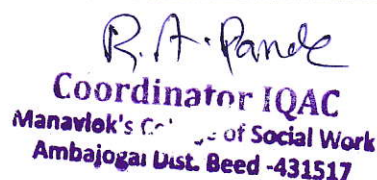 R. A. Pande
Coordinator IQAC
Manavlok's of Social Work
Ambajogai Dist. Beed -431517